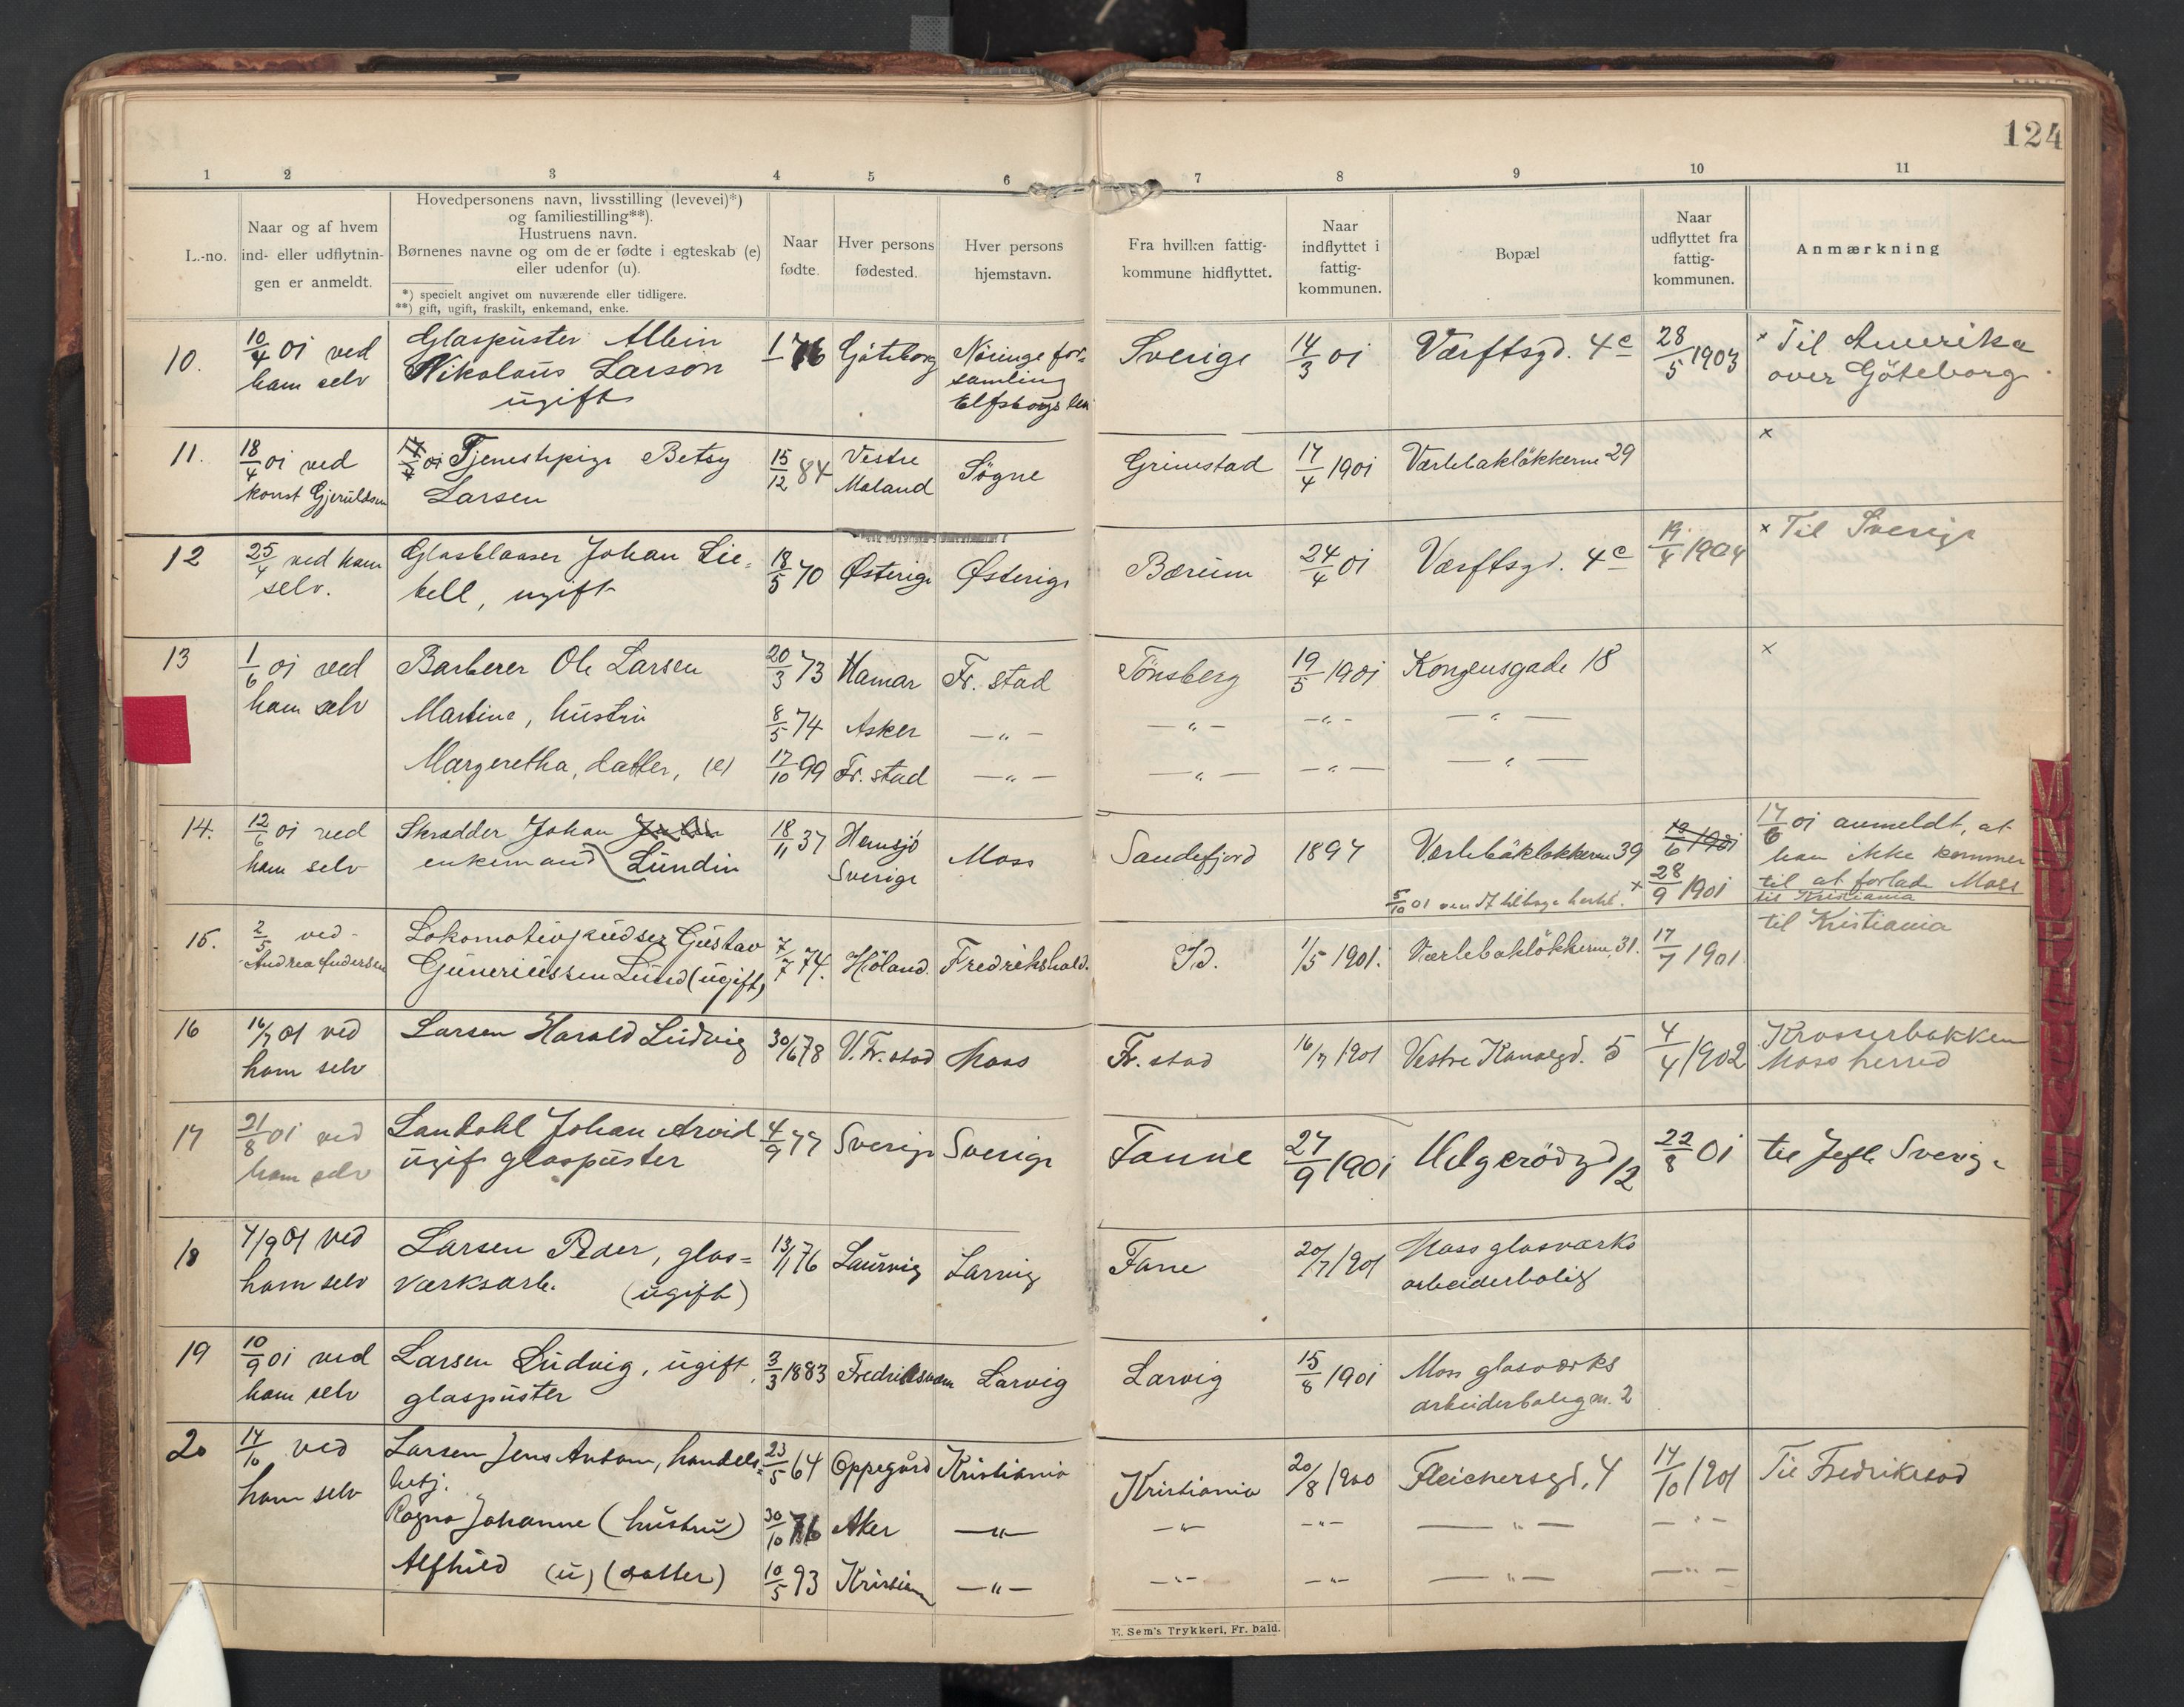 124
1 2 3 4 5 6 7 8 9 10 11
L.-no.
Naar og af hvem
ind- eller udflytnin-
gen er anmeldt.
Hovedpersonens navn, livsstilling (levevei)*)
og familiestilling**).
Hustruens navn.
Børnenes navne og om de er fødte i egteskab (e)
eller udenfor (u).
*) specielt angivet om nuværende eller tidligere.
**) gift, ugift, fraskilt, enkemand, enke.
Naar
fødte.
Hver persons
fødested.
Hver persons
hjemstavn.
Fra hvilken fattig-
kommune hidflyttet.
Naar
indflyttet i
fattig-
kommunen.
Bopæl
Naar
udflyttet fra
fattig-
kommunen.
Anmærkning
10. 10/4 01 ved Glaspuster Albin 76 Göteborg Sverige 14/3 01 Værftsgd. 4c 28/5 1903 × Til Amerika
ham selv Nikolaus Larson samling over Göteborg
ugift Elfsborgs len
11. 18/4 01 ved Tjenestepige Betsy 15/12 84 Vestre Søgne Grimstad 17/4 1901 Værlebakløkkerne 29 ×
konst Gjeruldsen Larsen Moland
12 25/4 ved ham Glasblaaser Johan Lie- 18/5 70 Østerige Østerige Bærum 24/4 01 Værftsgd. 4c 19/4 1904 × Til Sverige
selv. bell, ugift
13 1/6 01 ved Barberer Ole Larsen 20/3 73 Hamar Fr. stad Tönsberg 19/5 1901 Kongensgade 18 ×
ham selv Martine, hustru 8/5 74 Asker —"— —"— —"— —"—
Margeretha, datter, (e) 17/10 99 Fr. stad —"— —"— —"— —"—
14. 12/6 01 ved Skrædder Johan 18/11 37 Hemsjö Moss Sandefjord 1897 Værlebakløkkerne 39 17/6 01 anmeldt, at
ham selv enkemand Lundin Sverige han ikke kommer
5/10 01 × 28/9 1901 til at forlade Moss
til Kristiania
15. 2/5 ved Lokomotivpudser Gustav 7/7 74. Höland. Fredrikshald. Id. 1/5 1901. Værlebakløkkerne, 31. 17/7 1901 til Kristiania
Andrea Andersen Guneriussen Lund (ugift)
16 16/7 01 ved Larsen Harald Ludvig 30/6 78 V. Fr. stad Moss Fr. stad 16/7 1901 Vestre Kanalgd. 5 4/4 1902 Krosserbakken
ham selv Moss herred
17 21/8 01 ved Landahl Johan Arvid 4/9 77 Sverige Sverige Fanne 27/9 1901 Helgerödgd 12 22/8 01 til Jefle Sverige
ham selv ugift glaspuster
18 7/9 01 ved Larsen Peder, glas= 13/11 76 Laurvig Larvig Fane 20/7 1901 Moss glasværks
ham selv værksarb. (ugift) arbeiderbolig
19 10/9 01 ved Larsen Ludvig, ugift, 3/3 1883 Fredriksværn Larvig Larvig 15/8 1901 Moss glasværks
ham selv glaspuster arbeiderbolig nr. 2
20 17/10 ved Larsen Jens Antom, handels= 23/5 64 Oppegård Kristiania Kristiania 20/8 1900 Fleichersgd. 4 17/10 1901 Til Fredrikstad
ham selv betj.
Ragna Johanne (hustru) 30/10 76 Aker —"— —"— —"— —"— —"—
Alfhild (u) (datter) 10/5 93 Kristian —"— —"— —"— —"— —"—
E. Sem's Trykkeri, Fr. hald.